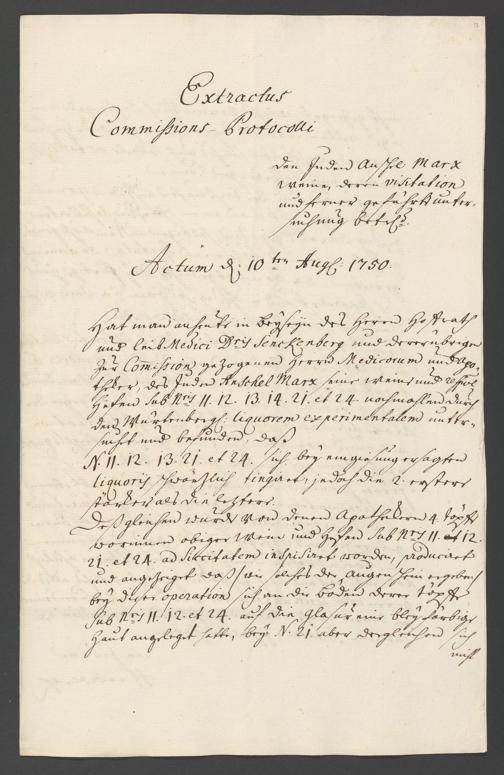 Extractus
Commissions-Protocolli
den Juden Anschel Marx
Weine, deren visitation
und ferner geführte unter-
suchung betr:
Actum d: 10ten Aug: 1750.
Hat man anheute in beyseyn des Herrn Hoffrath
und leib Medici Dris Senckenberg und derer übrigen
zur Comission gezogenen Herrn Medicorum und Apo-
theker, des Juden Anschel Marx seine weine und
Hefen sub Nris 11. 12. 13. 14. 21. et 24. nochmahlen durch
den Würtenberg: liquorem experimentalem unter-
sucht und befunden, daß
N. 11. 12. 13. 21. et 24. sich bey eingiesung ersagten
liquoris schwärtzlich tingiret, jedoch die 2. erstere
stärker als die letztere.
Deßgleichen wurde von denen Apothekern 4. töpfe
worinnen obiger Wein und Hefen sub Nris 11. et 12.
21. et 24. ad Siccitatem inspisiret worden, produciret
und angezeiget daß wie solches der augenschein ergeben
bey dieser operation sich an die boden derer töpfe
sub Nris 11. 12. et 24. auf die glasur eine bley färbige
Haut angeleget hätte, bey N. 21. aber dergleichen sich
nicht